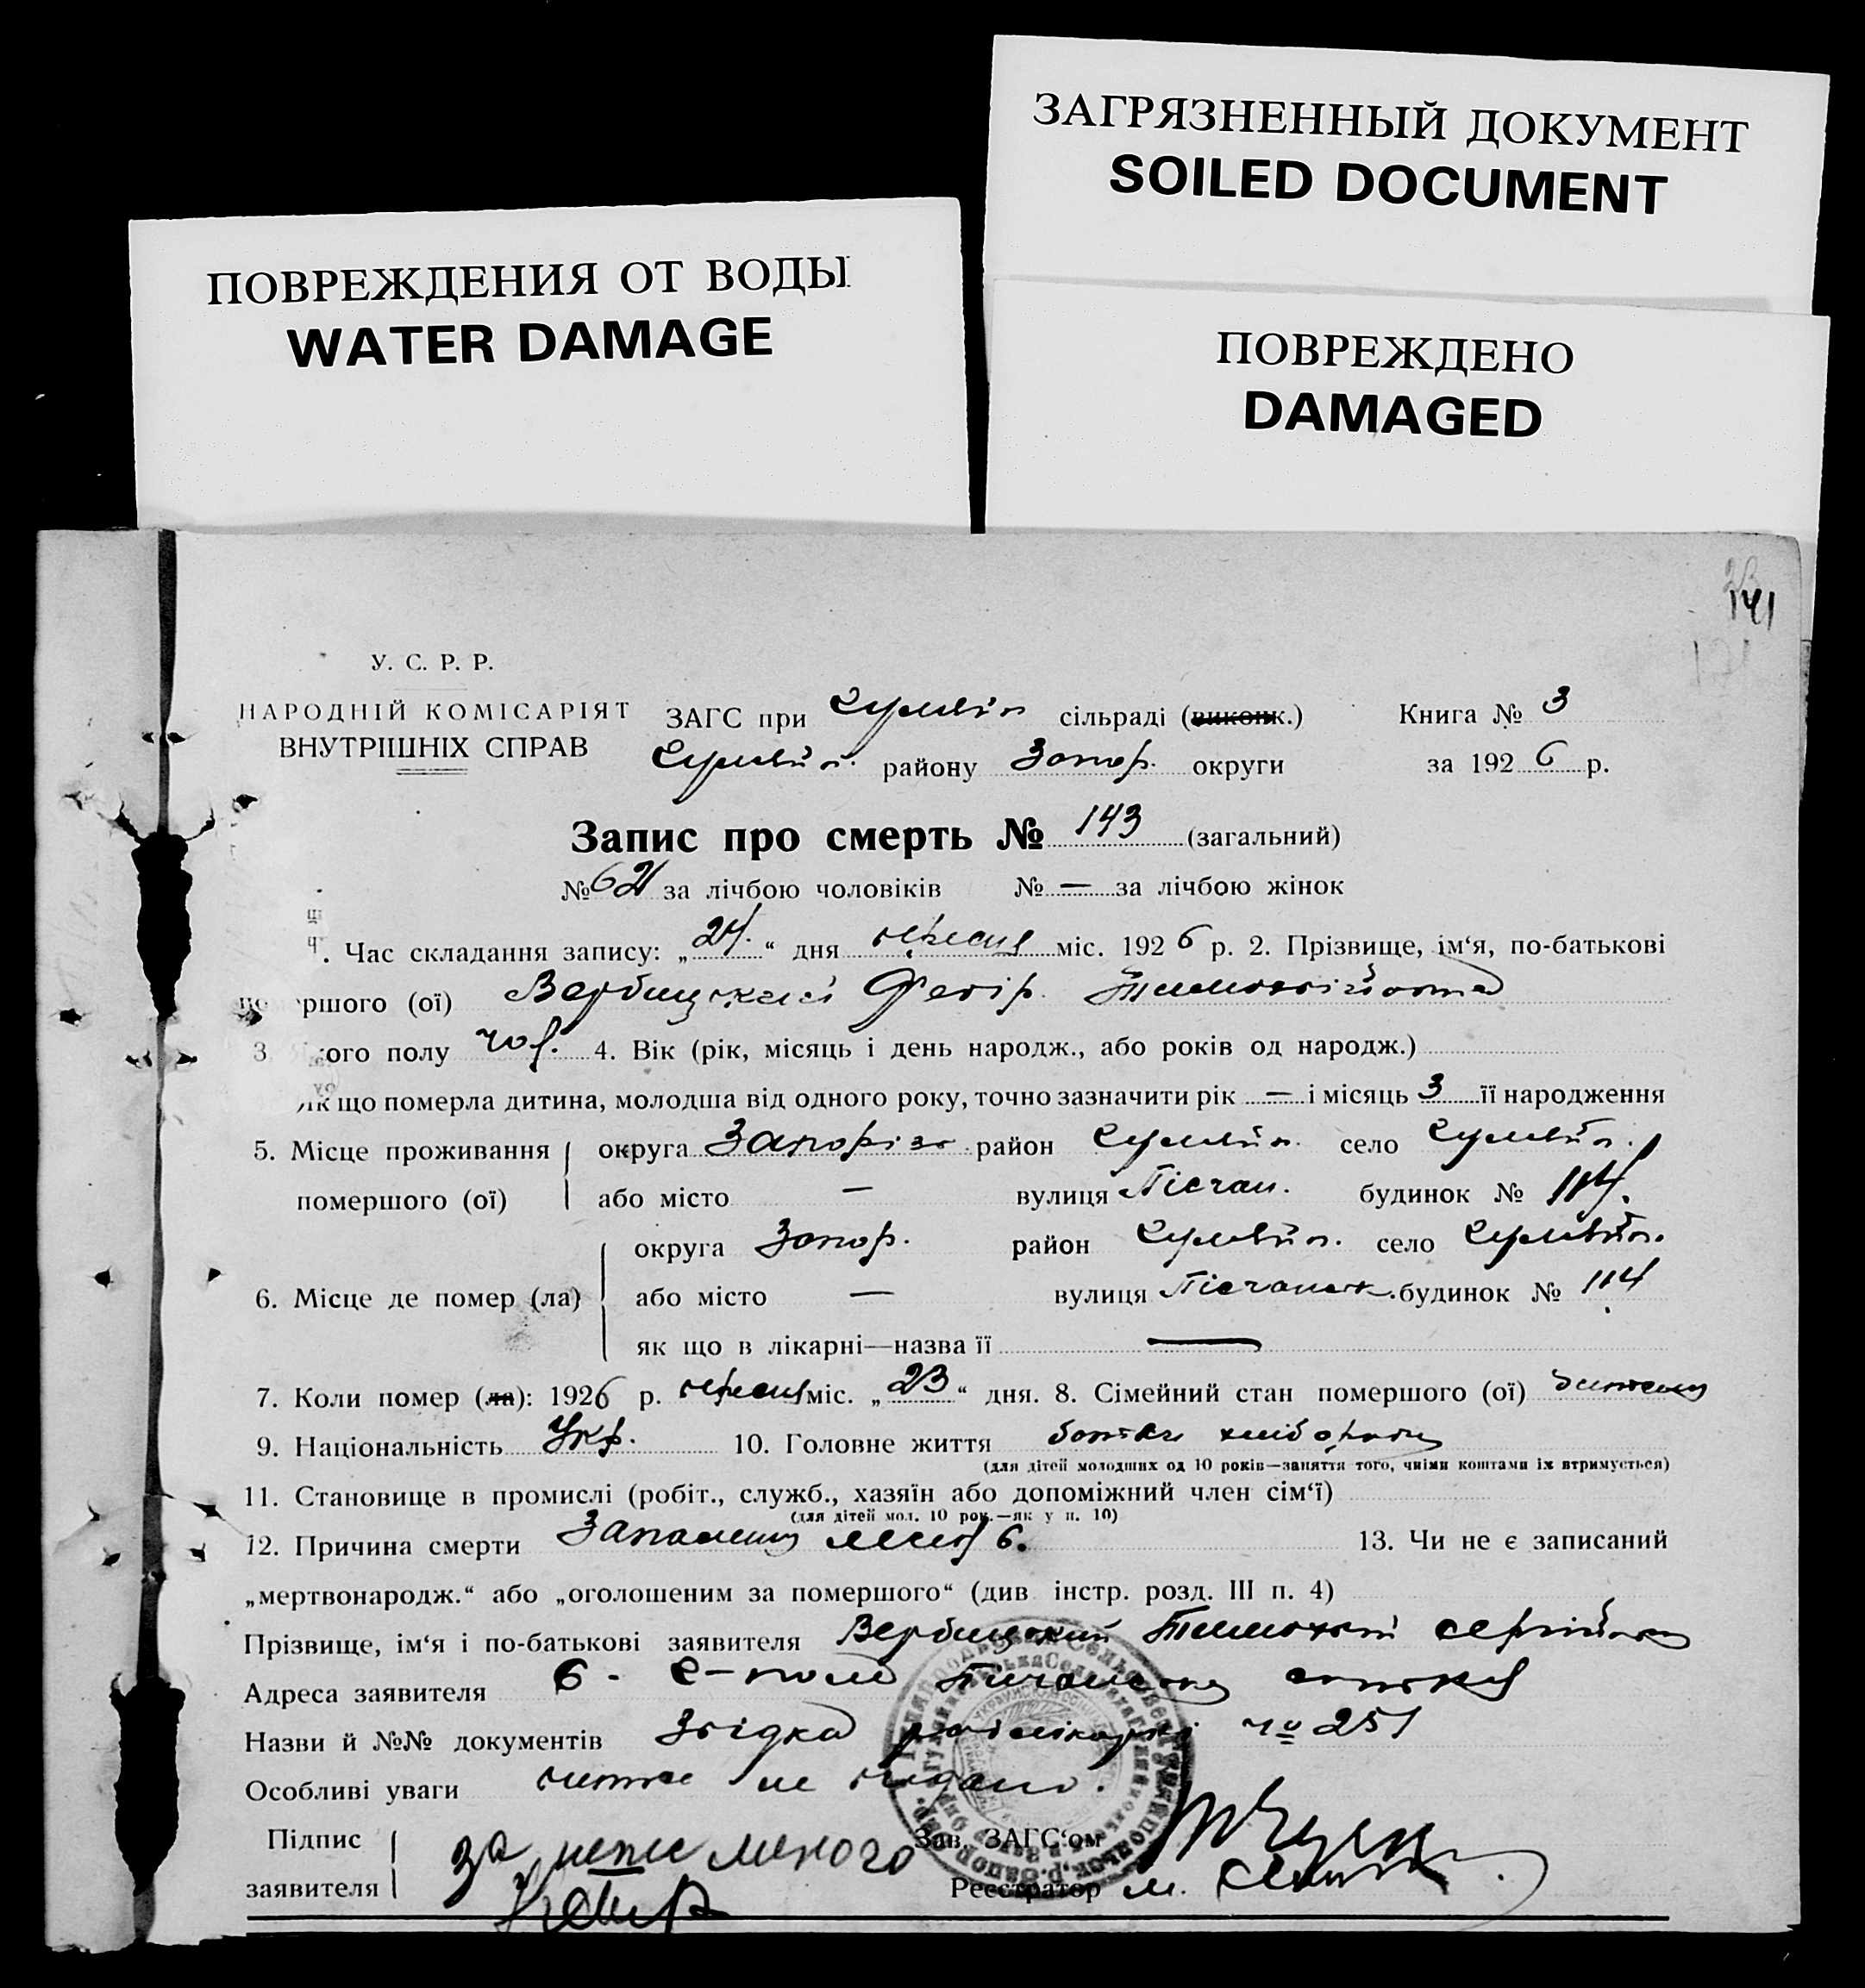 ЗАГРЯЗНЕННЫЙ ДОКУМЕНТ
SOILED DOCUMENT
ПОВРЕЖДЕНИЯ ОТ ВОДЫ
WATER DAMAGE
ПОВРЕЖДЕНО
DAMAGED
141
У. С. Р. Р.
НАРОДНІЙ КОМІСАРІЯТ
ВНУТРІШНІХ СПРАВ
ЗАГС при сільраді (виконк.) Книга № 3
району Запор. округи за 1926 р.
Запис про смерть № 143 (загальний)
№ за лічбою чоловіків № — за лічбою жінок
Час складання запису: „24.“ дня вересня міс. 1926 р. 2. Прізвище, ім‘я, по-батькові
ршого (ої) Вербицький Федір Тимофійович
3. кого полу чол. 4. Вік (рік, місяць і день народж., або років од народж.)
Як що померла дитина, молодша від одного року, точно зазначити рік — і місяць 3 її народження
5. Місце проживання округа Запоріз. район село
помершого (ої) або місто — вулиця Пісчан. будинок № 114.
округа Запор. район село
6. Місце де помер (ла) або місто — вулиця будинок № 114
як що в лікарні—назва її —
7. Коли помер (ла): 1926 р. вересня міс. „23“ дня. 8. Сімейний стан помершого (ої) дитина
9. Національність Укр. 10. Головне життя батьки хлібороби
(для дітей молодших од 10 років—заняття того, чиїми коштами їх втримується)
11. Становище в промислі (робіт., служб., хазяїн або допоміжний член сім‘ї)
(для дітей мол. 10 рок.—як у п. 10)
12. Причина смерти Запалення 13. Чи не є записаний
„мертвонародж.“ або „оголошеним за помершого“ (див. інстр. розд. III п. 4)
Прізвище, ім‘я і по-батькові заявителя Вербицький Тимофій Сергійович
Адреса заявителя
Назви й №№ документів Звідка райлікарні № 251
Особливі уваги не подано.
Підпис за неписменого Зав. ЗАГС‘ом
заявителя Реєстратор